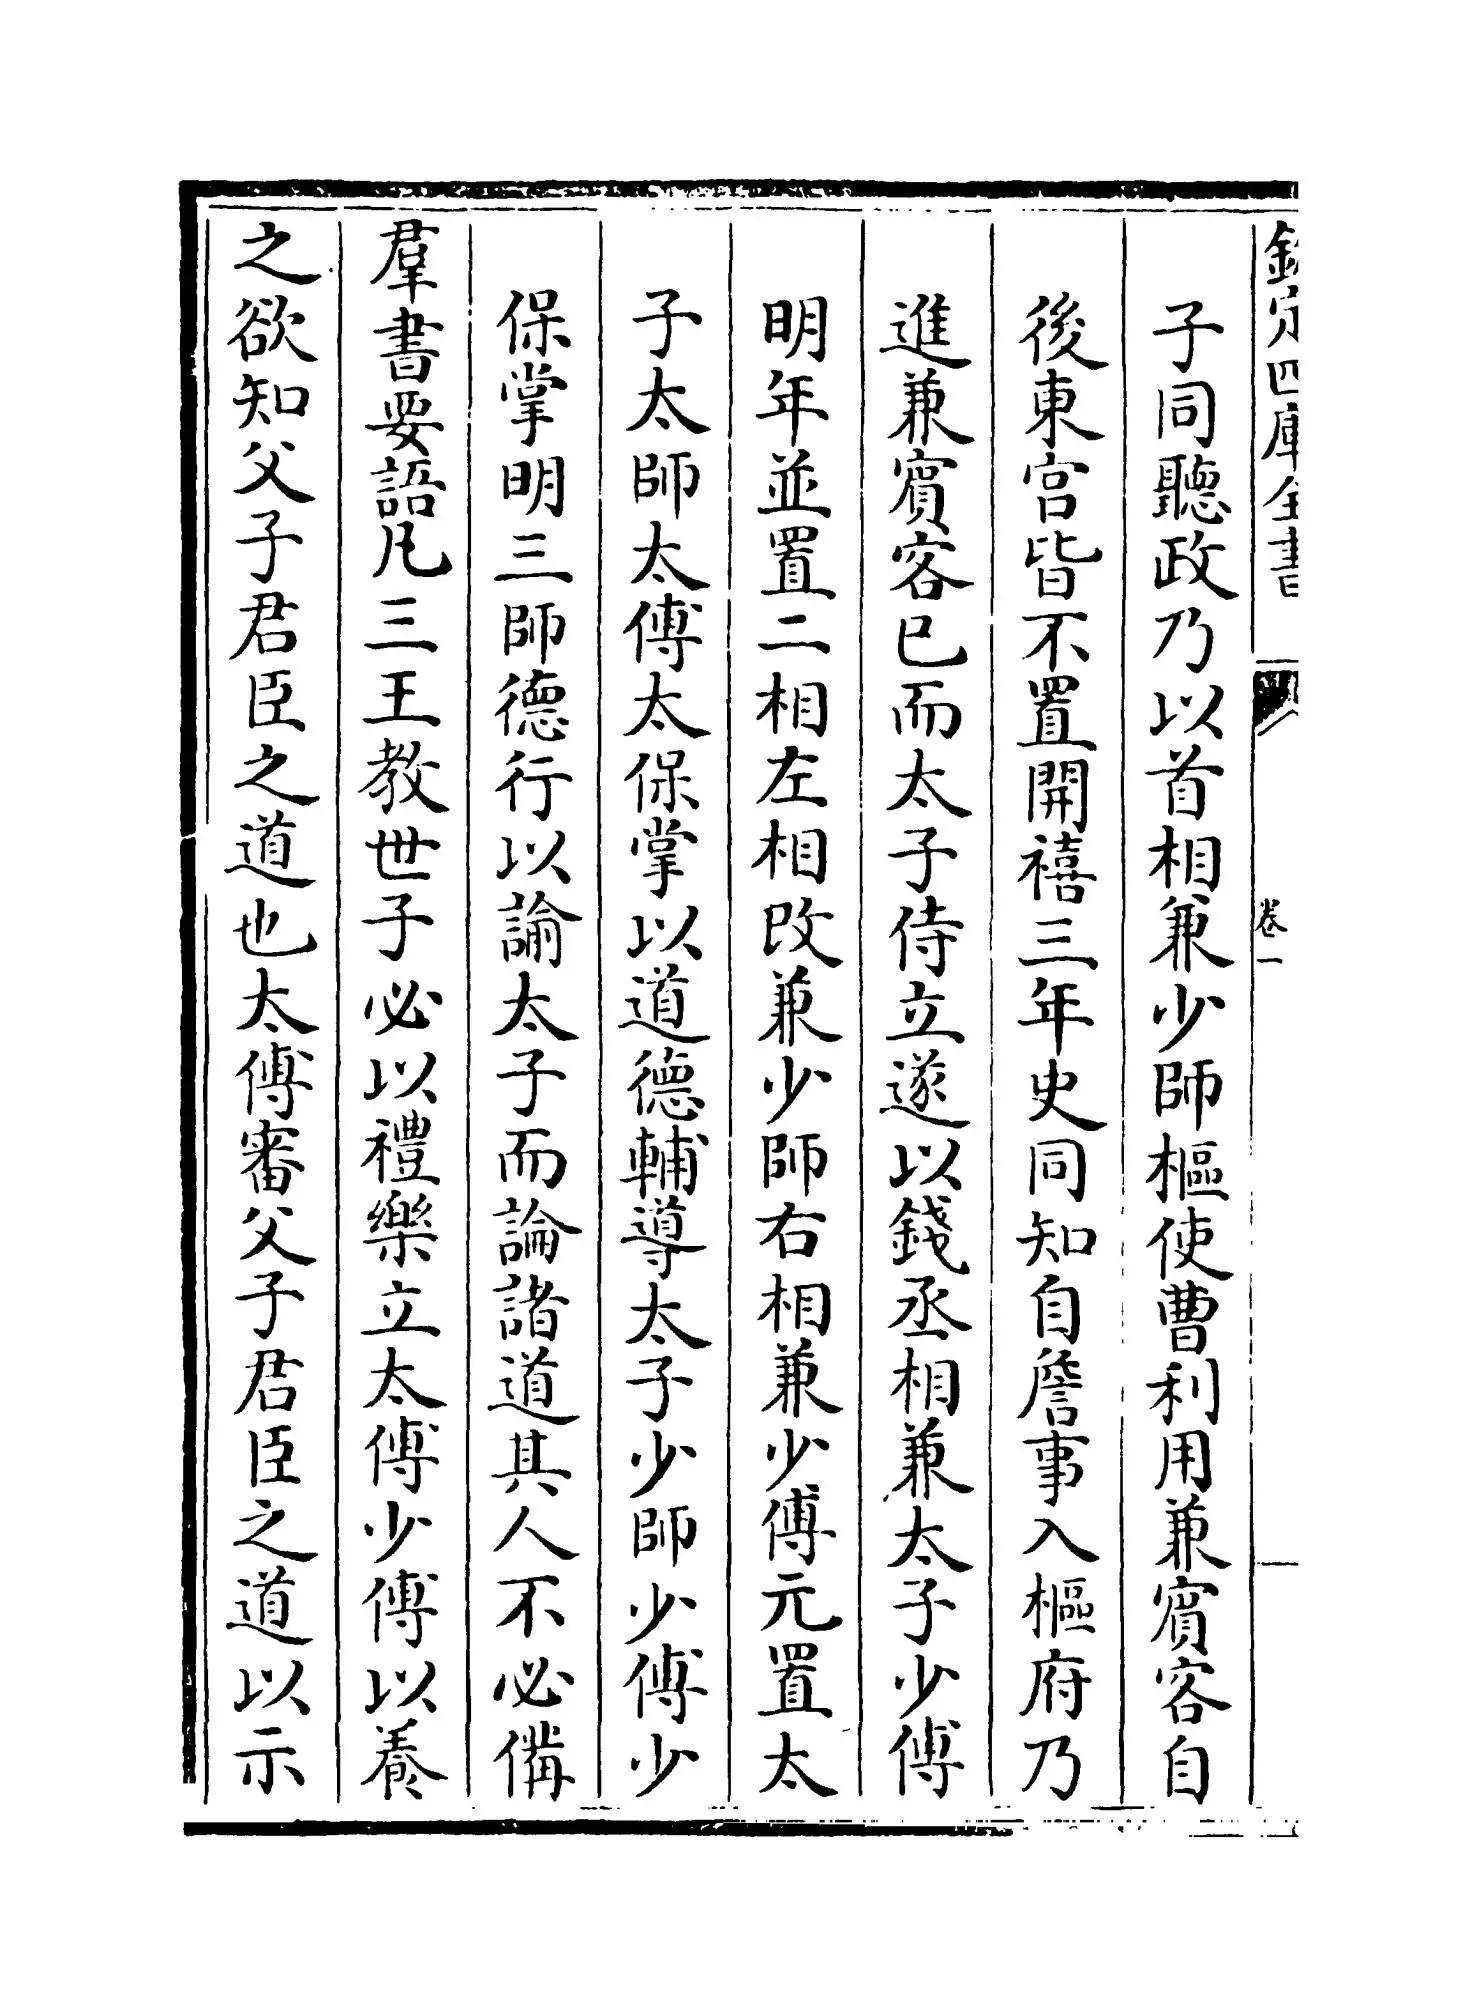 欽定四庫全書
卷一
子同聽政乃以首相兼少師樞使曹利用兼賓客自
後東宮皆不置開禧三年史同知自詹事入樞府乃
進兼賓客已而太子侍立遂以錢丞相兼太子少傅
明年並置二相左相改兼少師右相兼少傅元置太
子太師太傅太保掌以道德輔導太子少師少傅少
保掌明三師德行以諭太子而論諸道其人不必備
羣書要語凡三王教世子必以禮樂立太傅少傅以養
之欲知父子君臣之道也太傅審父子君臣之道以示